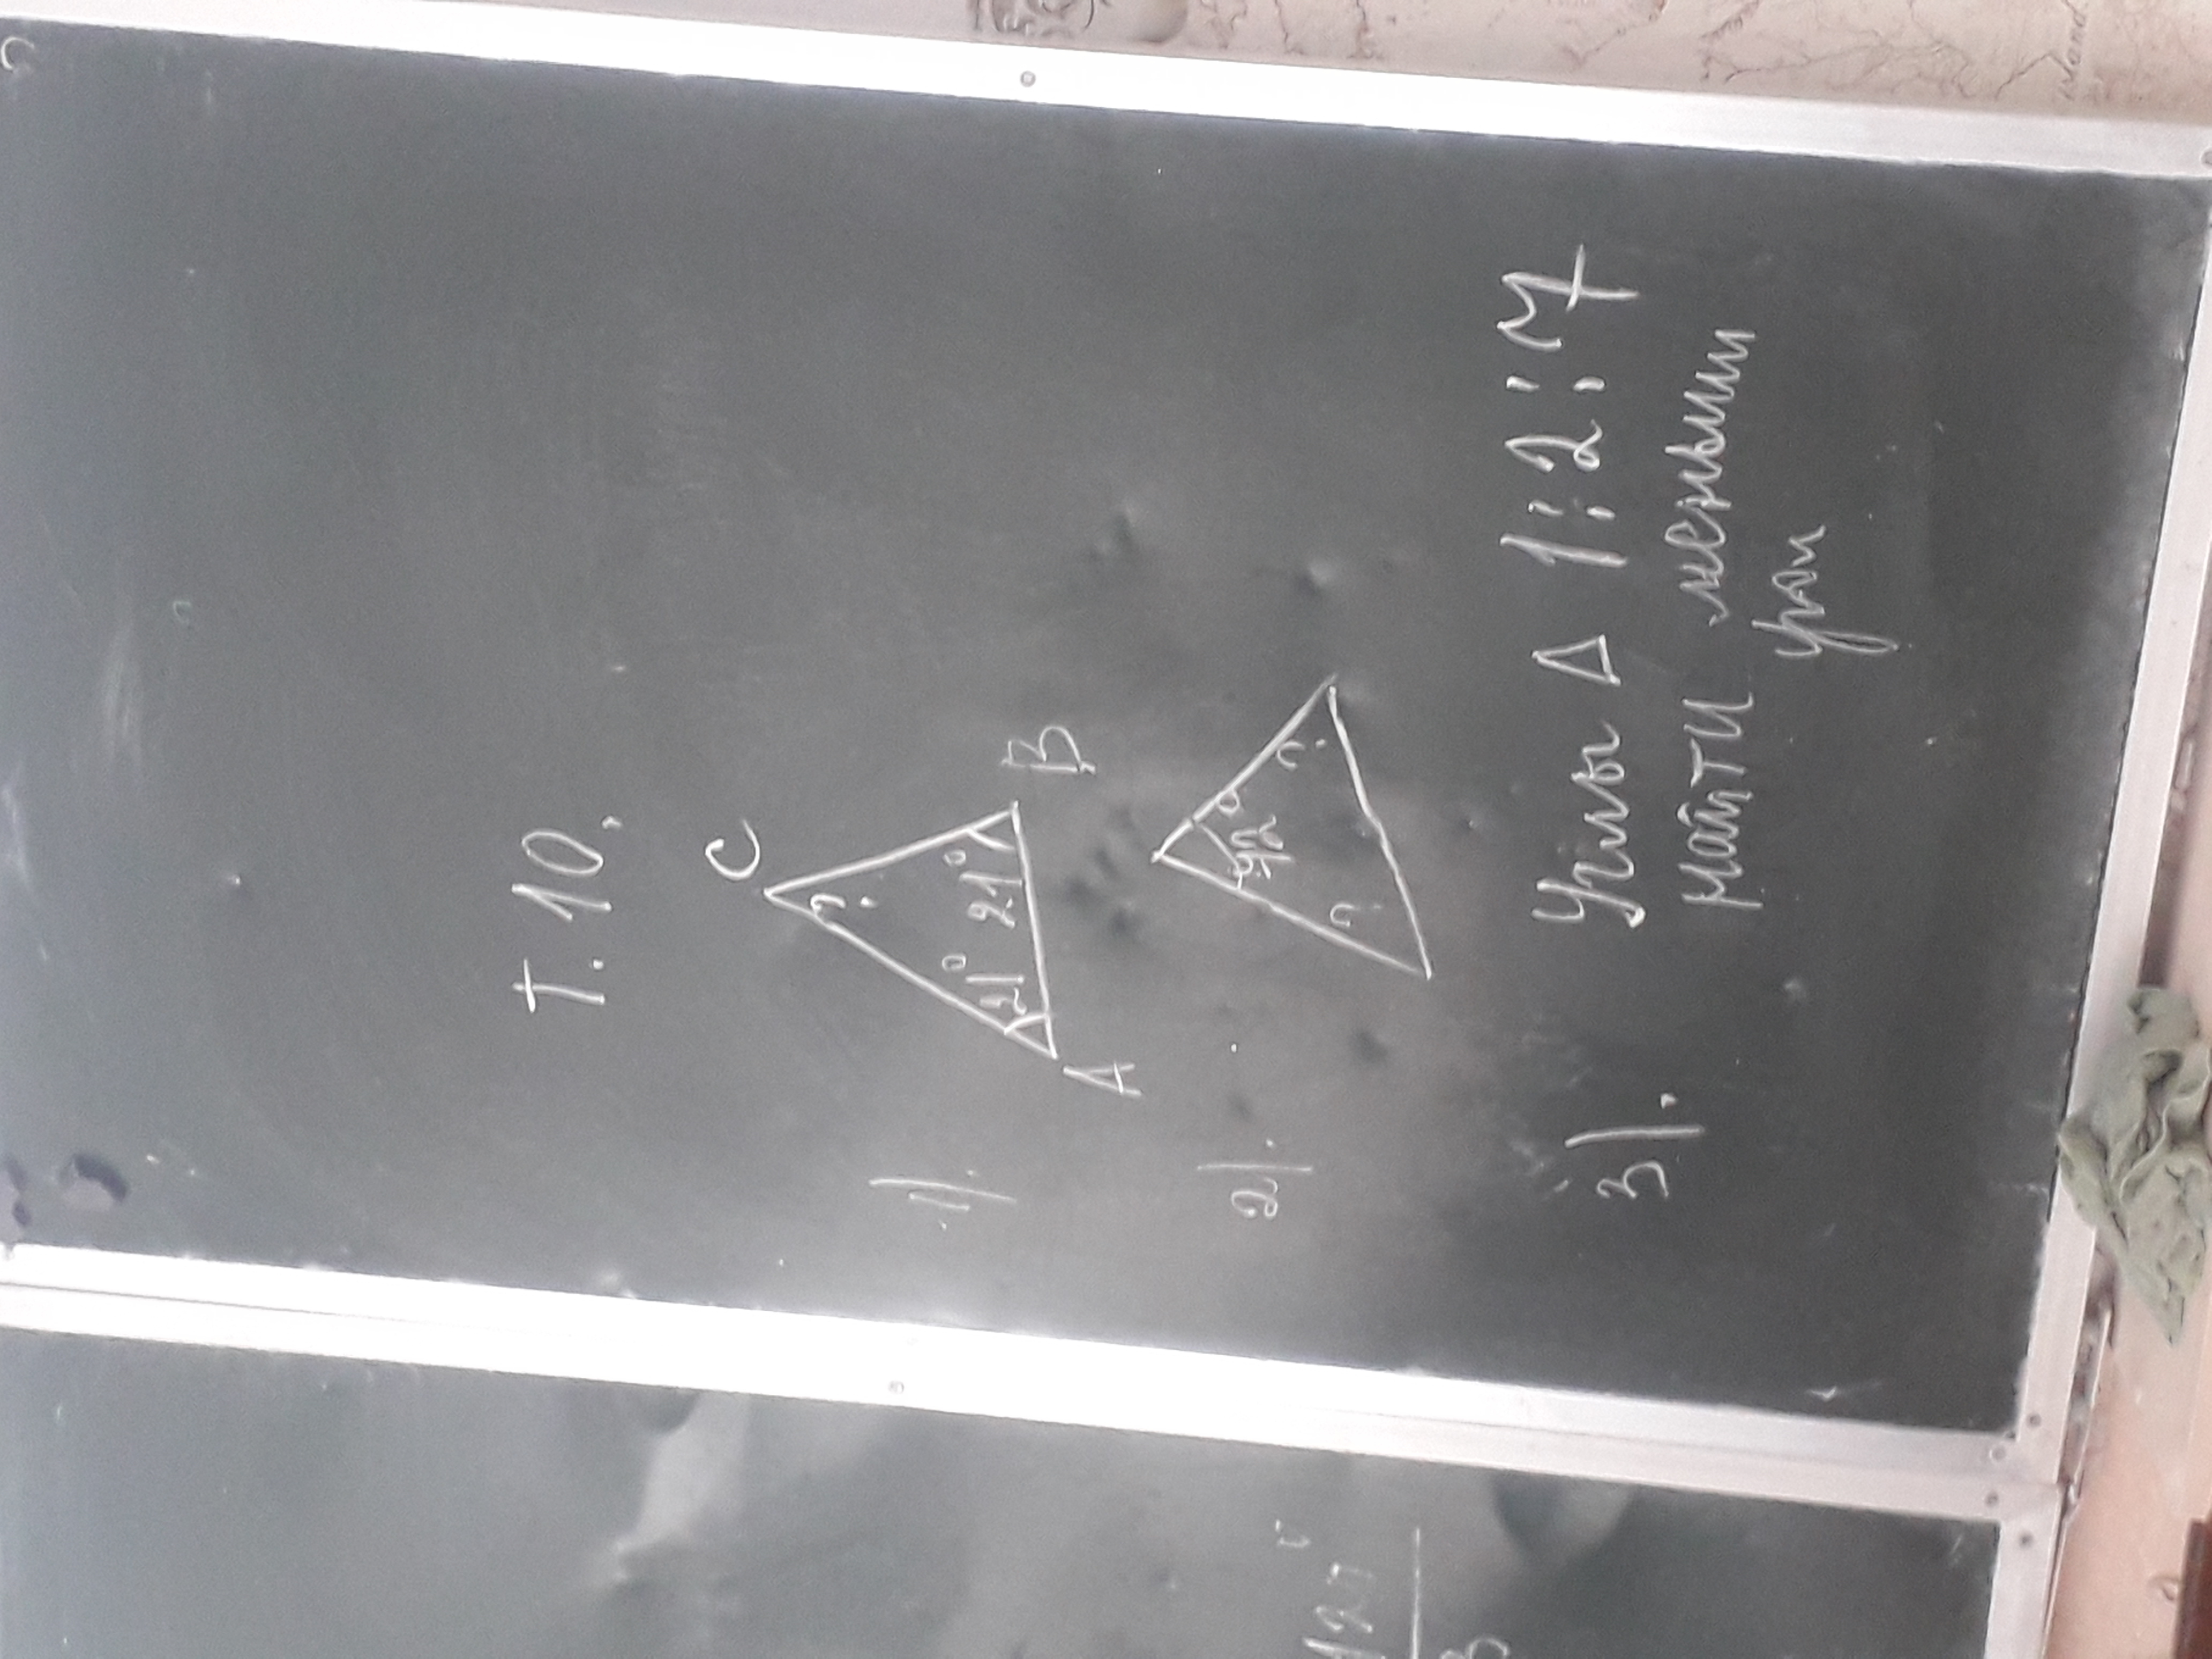 Т. 10.
1).
C
?
21° 21°
A
B
2).
92°
? ?
3). Углы Δ 1:2:7
найти меньший
угол